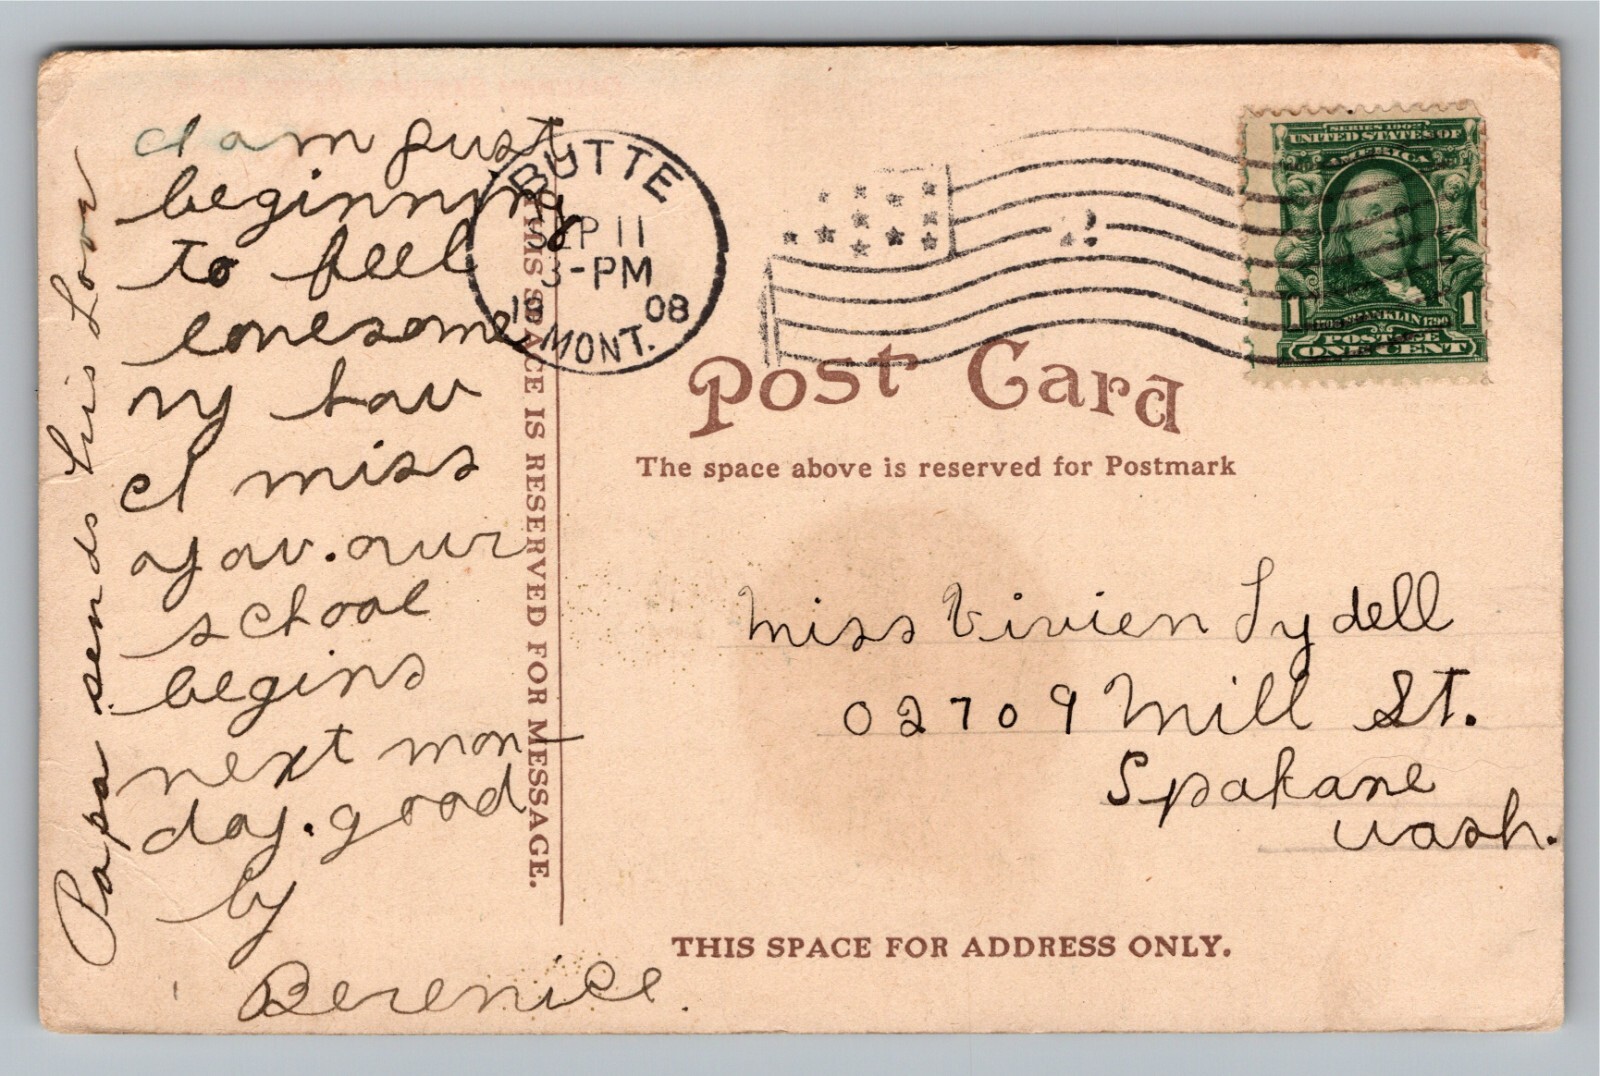 I am just
beginning
to feel
lonesome
my how
I miss
you. our
school
begins
next mon-
day. good
by
Berenice.
Papa sends his Love
THIS SPACE IS RESERVED FOR MESSAGE.
BUTTE
SEP 11
3-PM
19 08
MONT.
SERIES 1902
UNITED STATES OF
AMERICA
1 FRANKLIN 1790 1
POSTAGE
ONE CENT
Post Card
The space above is reserved for Postmark
Miss Vivien Lydell
02709 Mill St.
Spokane
Wash.
THIS SPACE FOR ADDRESS ONLY.